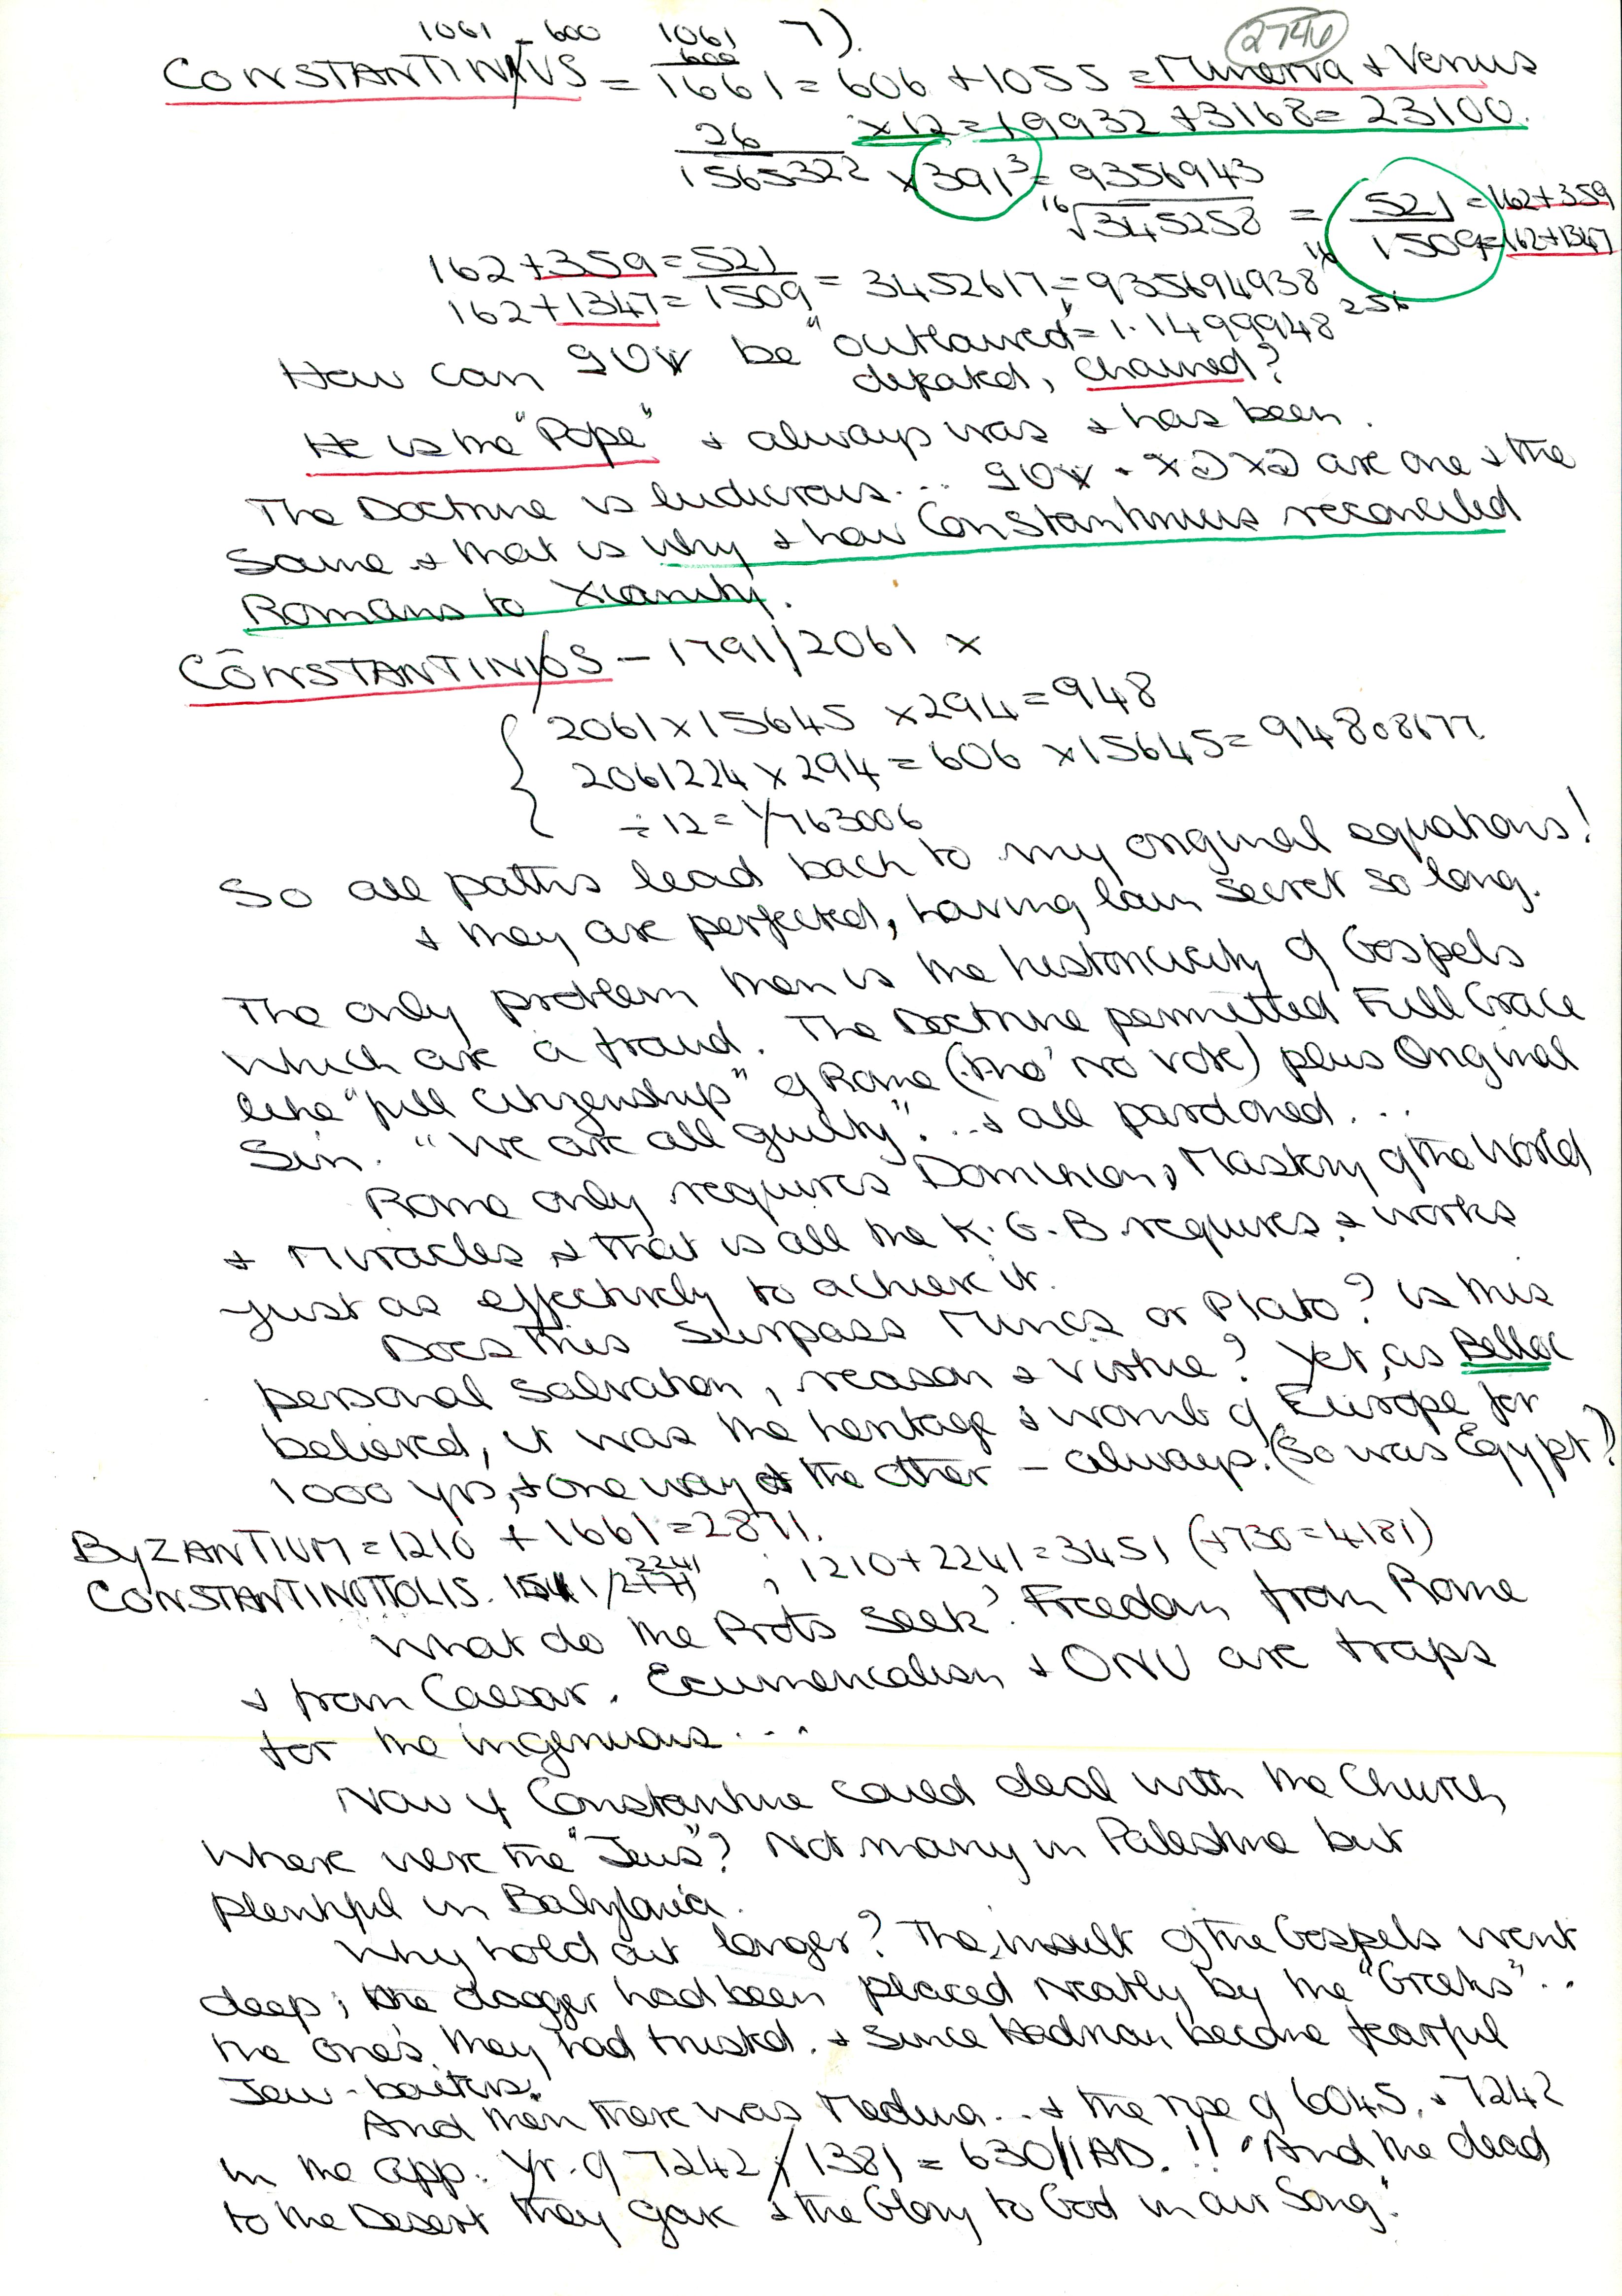 7).
2746
1061 - 600 1061
600
CONSTANTINUS = 1661 = 606 + 1055 = Minerva + Venus
x12 = 19932 + 3168 = 23100.
26
1565322 x 391³ = 9356943
¹⁶√345258 = 521 = 162+359
1509 = 162+1347
162 + 359 = 521
162 + 1347 = 1509 = 3452617 = 935694938¹⁶
How can be "outlawed" = 1.1499948²⁵⁶
defeated, chained?
He is the "Pope" + always was + has been.
The Doctrine is ludicrous... are one + the
same + that is why + how Constantinus reconciled
Romans to Xianity.
CŌNSTANTINOS - 1791/2061 x
2061 x 15645 x 294 = 948
2061224 x 294 = 606 x 15645 = 94808677.
÷ 12 = 1/763006
So all paths lead back to my original equations!
+ they are perfected, having lain secret so long.
The only problem then is the historicity of Gospels
which are a fraud. The Doctrine permitted Full Grace
like "full citizenship" of Rome (tho' no vote) plus Original
Sin. "We are all guilty"... + all pardoned...
Rome only requires Dominion, Mastery of the World
+ Miracles + that is all the K.G.B. requires, + works
just as effectively to achieve it.
Does this surpass Minos or Plato? is this
personal salvation, reason + virtue? Yet, as Belloc
believed, it was the heritage + womb of Europe for
1000 yrs, + one way or the other - always. (So was Egypt?)
BYZANTIUM = 1210 + 1661 = 2871.
CONSTANTINOΠOLIS. 1511/2771 2241 ; 1210 + 2241 = 3451 (+730 = 4181)
What do the Prots seek? Freedom from Rome
+ from Caesar. Ecumenicalism + ONU are traps
for the ingenuous...
Now if Constantine could deal with the Church,
where were the "Jews"? Not many in Palestine but
plentiful in Babylonia.
Why hold out longer? The insult of the Gospels went
deep; the dagger had been placed neatly by the "Greeks"..
the ones they had trusted. + since Hadrian become fearful
Jew-baiters.
And then there was Medina... + the rise of 6045. + 7242
in the app. yr. of 7242 / 1381 = 630/1 AD.!! "And the dead
to the Desert they gave + the Glory to God in our Song."